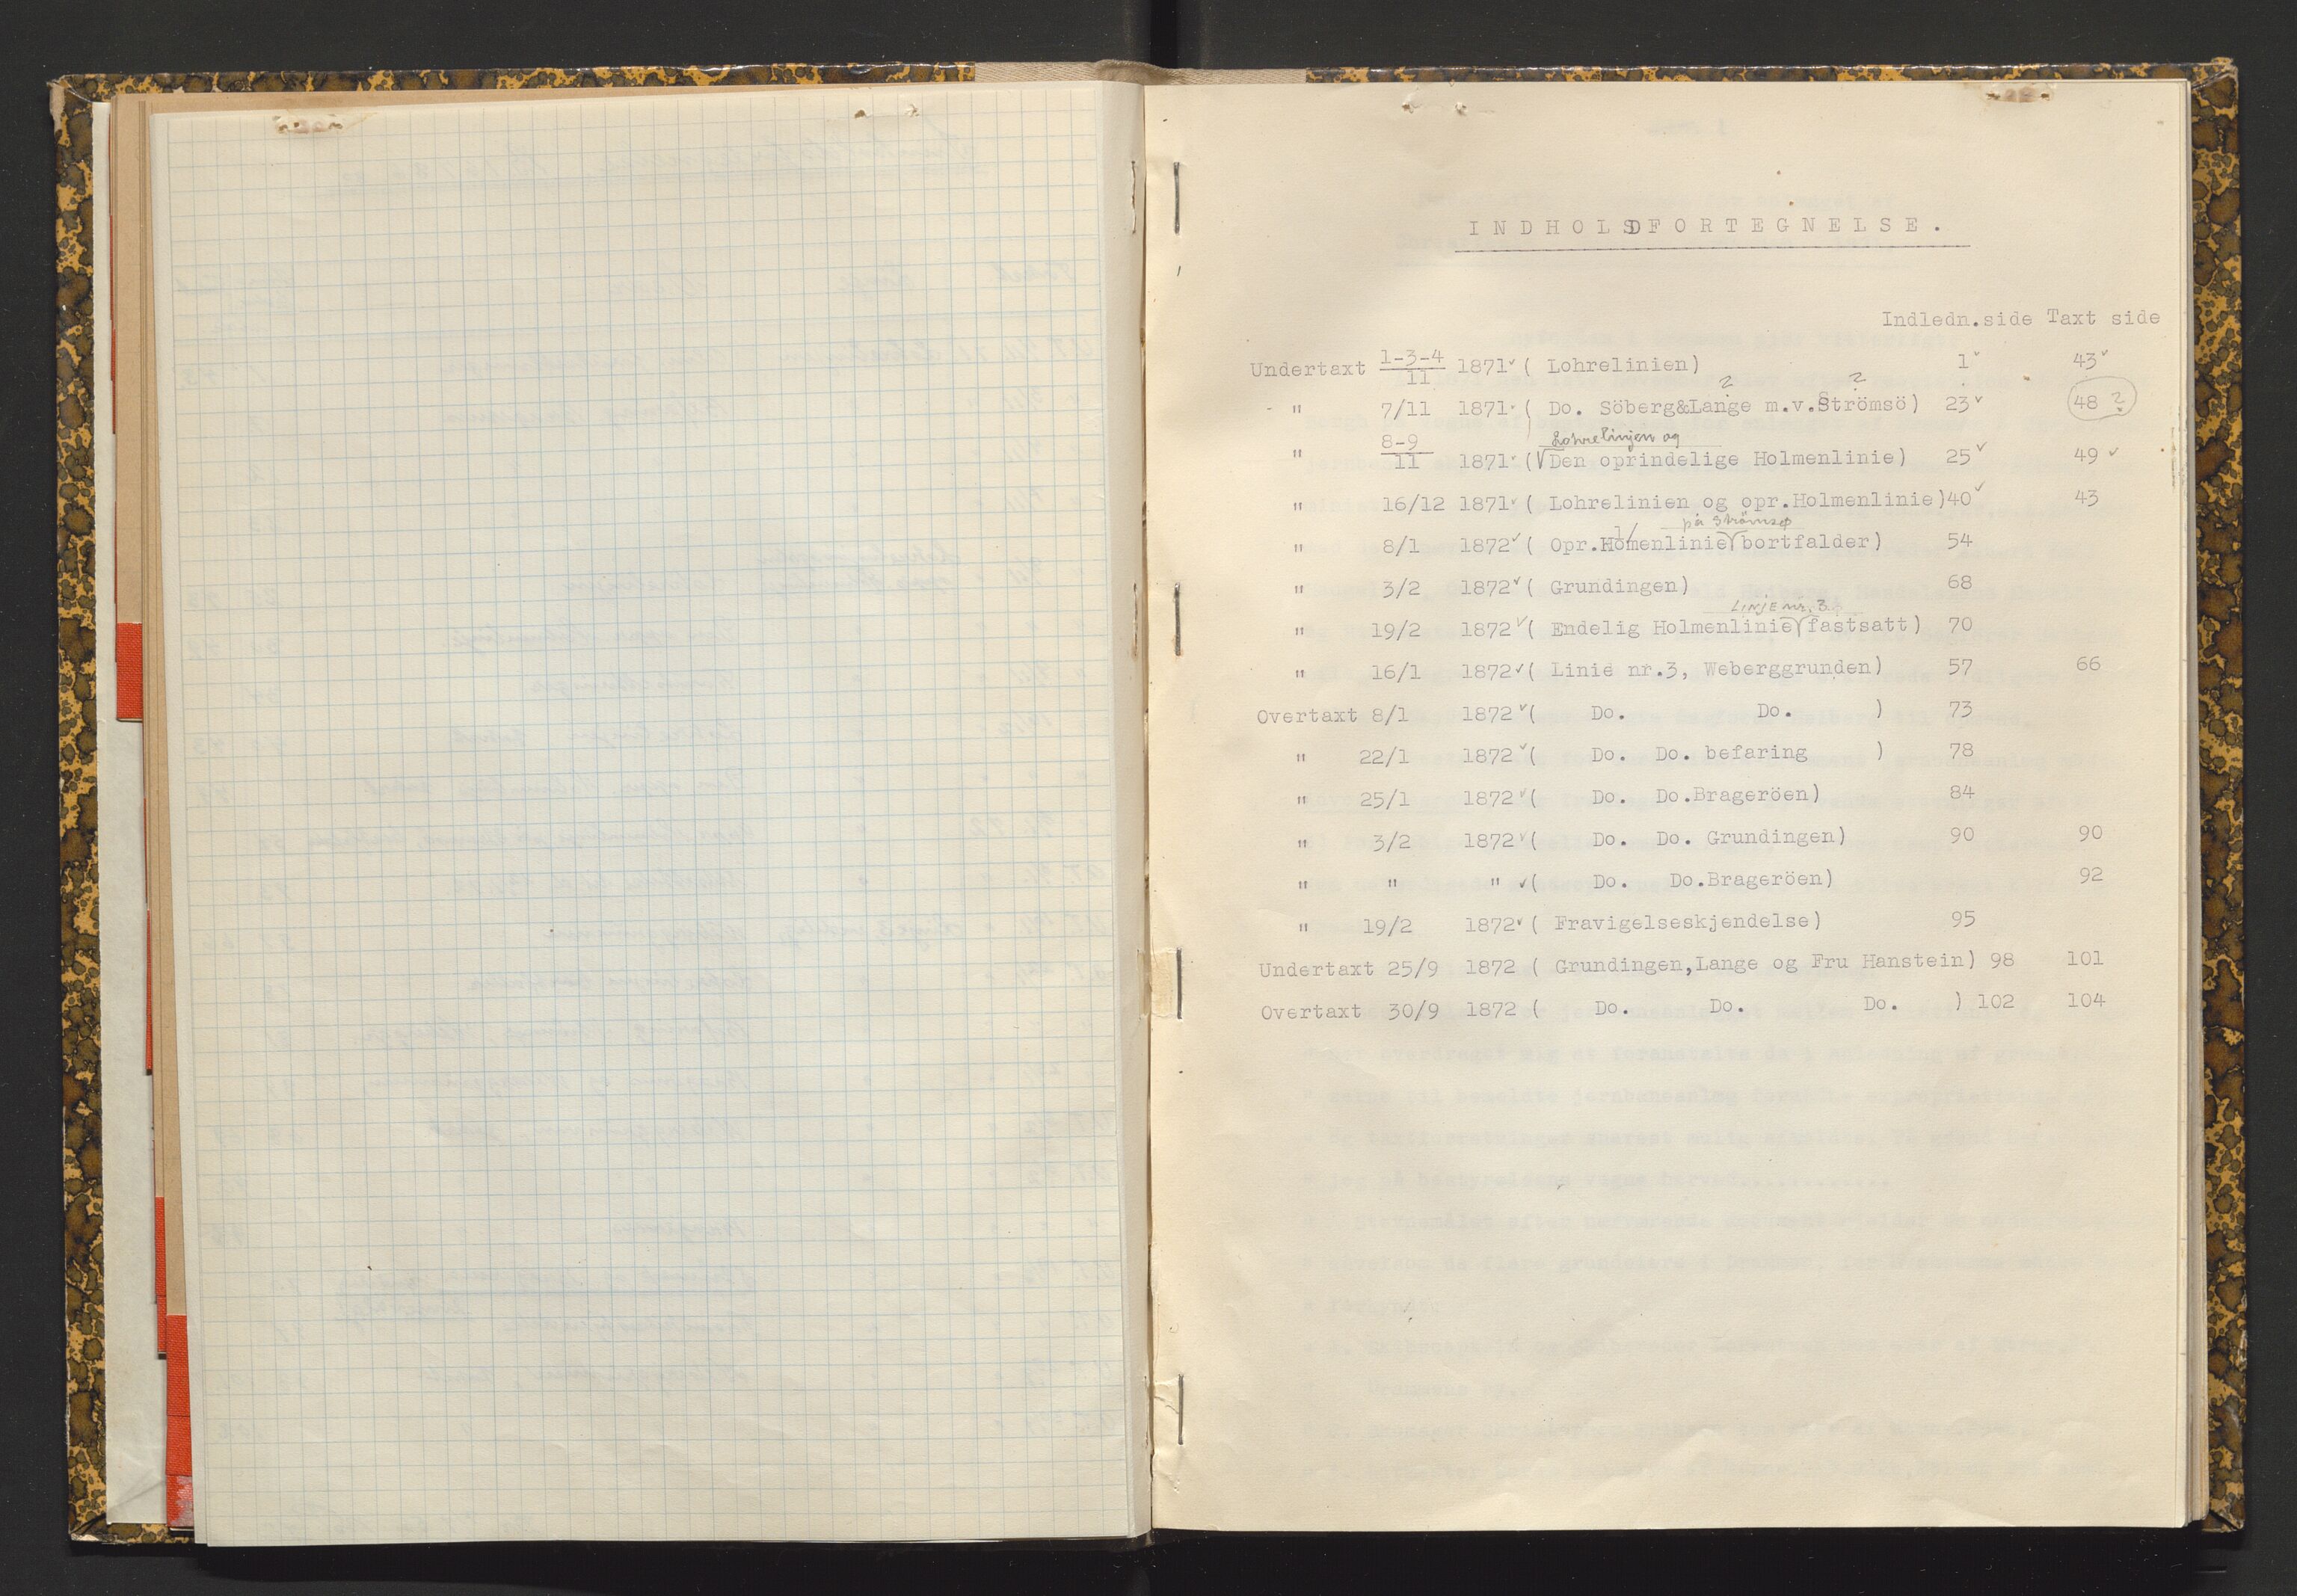 INDHOLDSFORTEGNELSE.
Indledn.side Taxt side
Undertaxt 1-3-4/11 1871 ✓ ( Lohrelinien) 1 ✓ 43 ✓
" 7/11 1871 ( Do. Söberg&Lange m.v. Strömsö) 23 ✓ 48 ?
? ?
Lohrelinjen og
" 8-9/11 1871 ( √ Den oprindelige Holmenlinie) 25 ✓ 49 ✓
" 16/12 1871 ✓ ( Lohrelinien og opr.Holmenlinie) 40 ✓ 43
på Strömsø
" 8/1 1872 ✓ ( Opr.Holmenlinie √ bortfalder) 54
" 3/2 1872 ✓ ( Grundingen) 68
LINJE nr. 3
" 19/2 1872 ✓ ( Endelig Holmenlinie √ fastsatt) 70
" 16/1 1872 ✓ ( Linie nr.3, Weberggrunden) 57 66
Overtaxt 8/1 1872 ✓ ( Do. Do. ) 73
" 22/1 1872 ✓ ( Do. Do. befaring ) 78
" 25/1 1872 ✓ ( Do. Do.Brageröen) 84
" 3/2 1872 ✓ ( Do. Do. Grundingen) 90 90
" " " ✓ ( Do. Do.Brageröen) 92
" 19/2 1872 ✓ ( Fravigelseskjendelse) 95
Undertaxt 25/9 1872 ( Grundingen,Lange og Fru Hanstein) 98 101
Overtaxt 30/9 1872 ( Do. Do. Do. ) 102 104